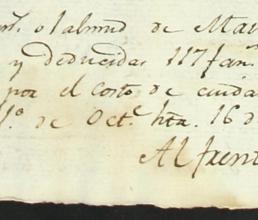 o l almud de Mar
y deducidas 117 fan.
por el costo de cuida
1.º de Oct.e hta. 16 d
Al frent